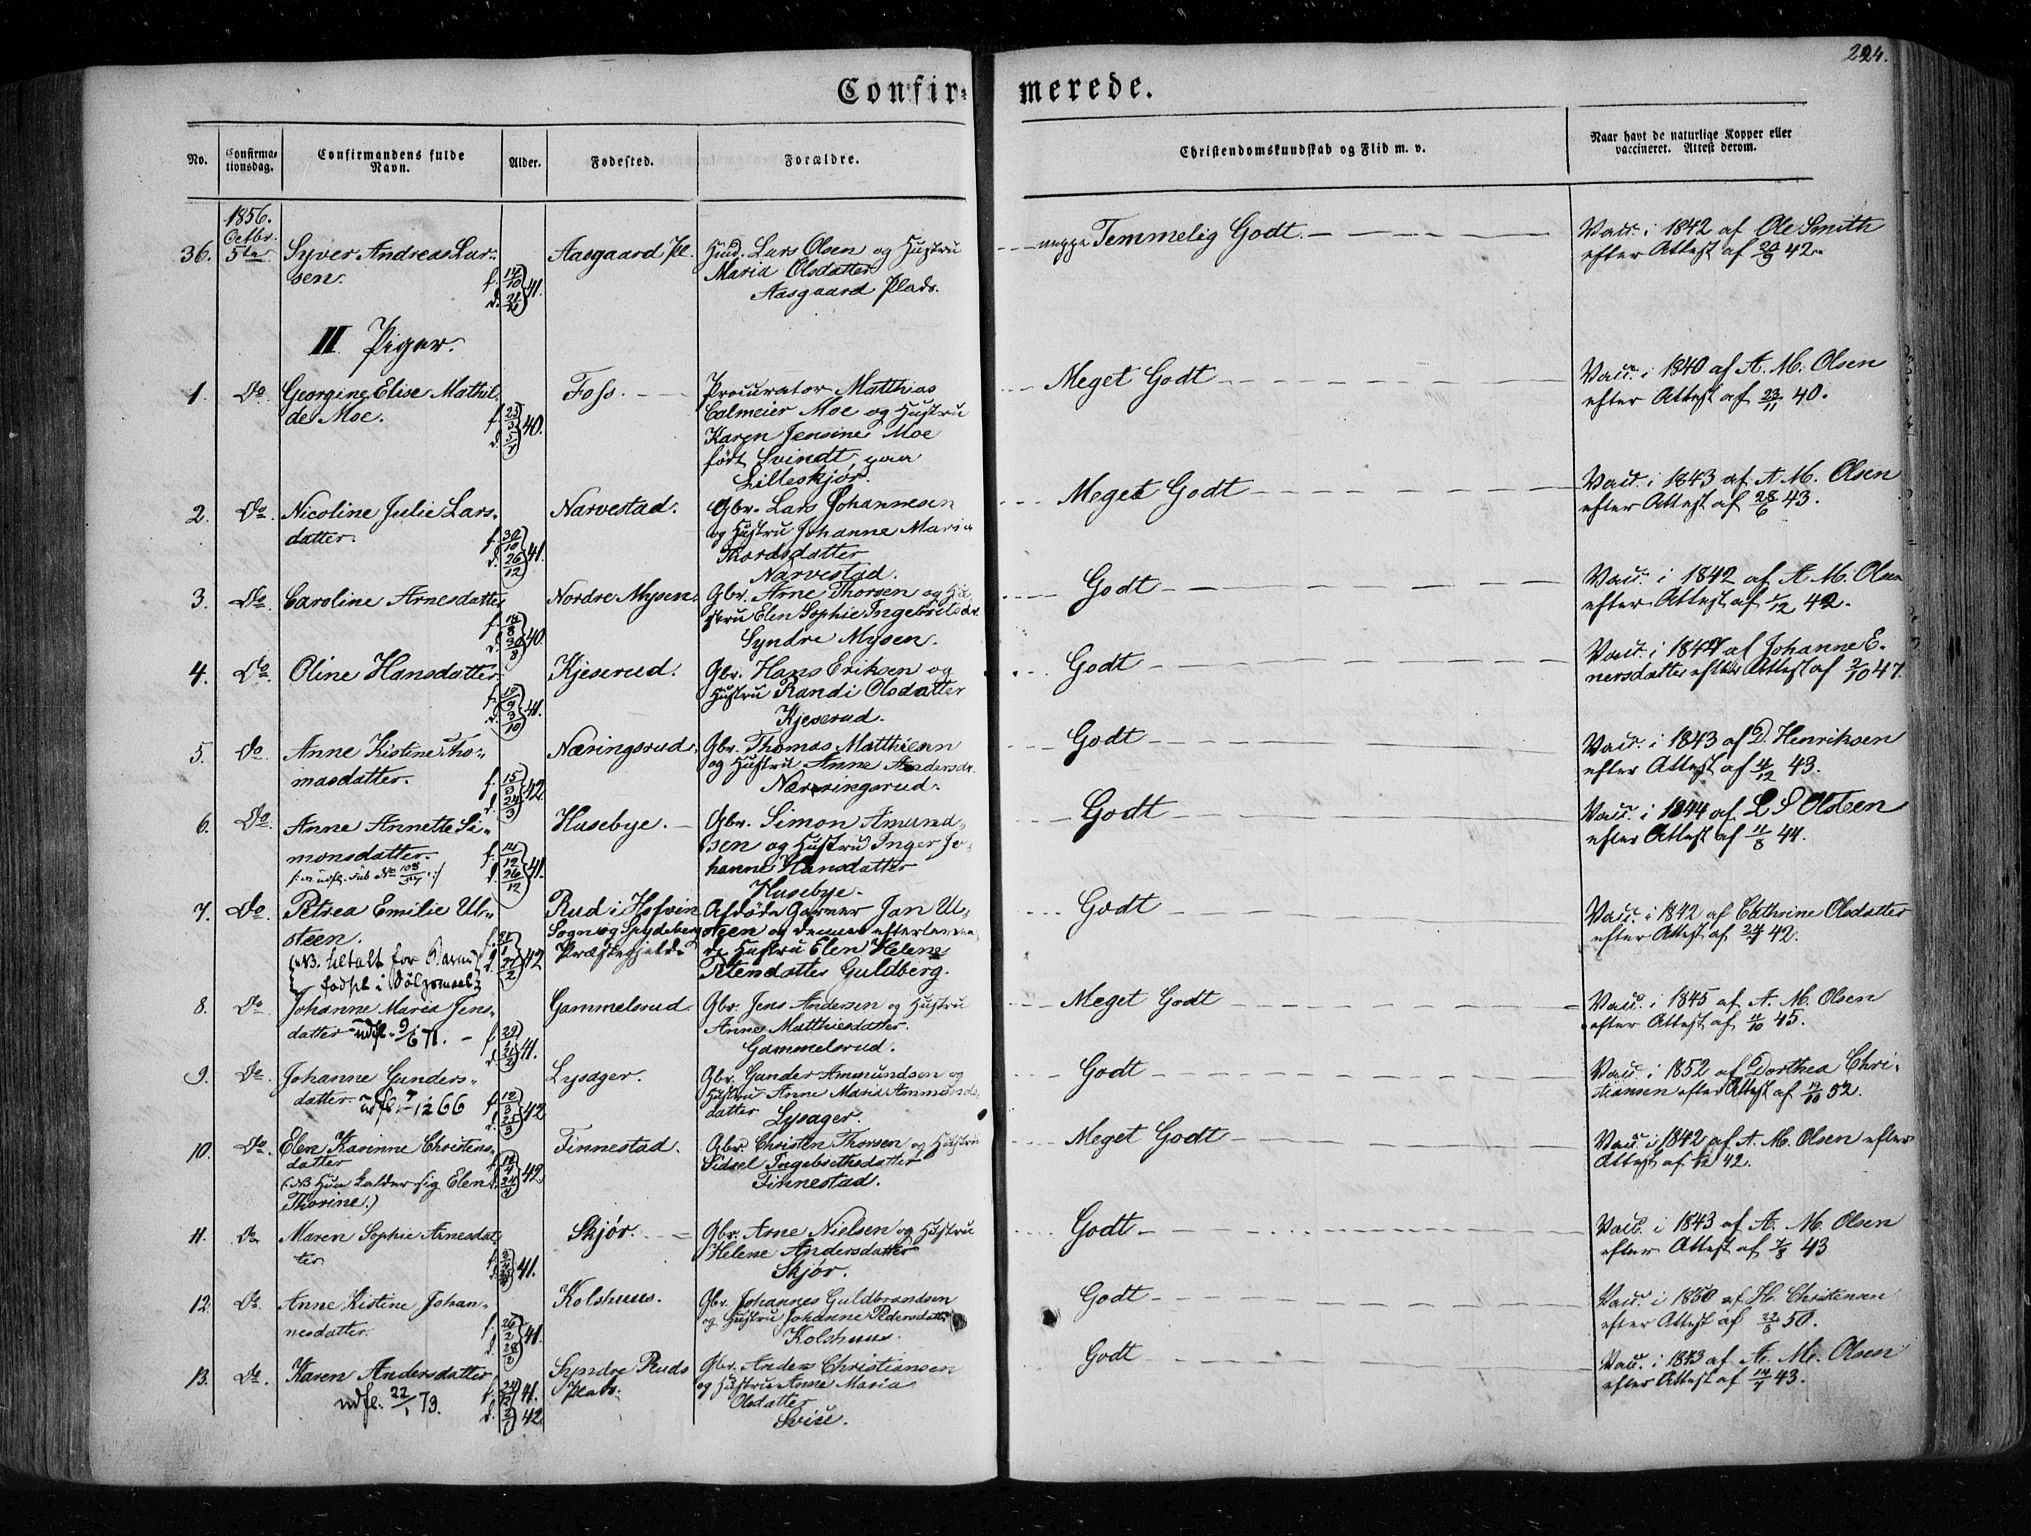 224.
Confir= merede.
No. Confirma-tionsdag. Confirmandens fulde Navn. Alder. Fødested. Forældre. Christendomskundskab og Flid m. v. Naar havt de naturlige Kopper eller vaccineret. Attest derom.
1856.
Octbr.
36. 5te Syver Andreas Lar- Aasgaard Pl. Huusmd. Lars Olsen og Hustru neppe Temmelig Godt. Vacc. i 1842 af Ole Smith
sen. f. 14/10 41. Maria Olsdatter efter Attest af 24/9 42.
d. Aasgaard Plads.
II Piger.
1. Do Georgine Elise Mathil- Foss. Procurator Matthias Meget Godt Vacc. i 1840 af A. M. Olsen
de Moe. f. 23/3 40. Calmeier Moe og Hustru efter Attest af 23/11 40.
d. Karen Jensine Moe
født Svindt paa
Lilleskjør.
2. Do Nicoline Julie Lars- Narvestad. Gbr. Lars Johannesen Meget Godt Vacc. i 1843 af A. M. Olsen
datter. f. 30/10 41. og Hustru Johanne Maria efter Attest af 28/6 43.
d. 26/12 Thordsdatter
Narvestad.
3. Do Caroline Arnesdatter Nordre Mysen. Gbr. Arne Thorsen og Hu- Godt Vacc. i 1842 af A. M. Olsen
f. 14/8 40. stru Elen Sophie Ingebretsdr. efter Attest af 1/12 42.
d. 30/8 Syndre Mysen.
4. Do Oline Hansdatter Kjeserud. Gbr. Hans Eriksen og Godt Vacc. i 1847 af Johanne E-
f. 41. Hustru Randi Olsdatter nersdatter efter Attest af 2/10 47.
d. 3/10 Kjeserud.
5. Do Anne Kistine Tho- Næringsrud. Gbr. Thomas Matthiesen Godt Vacc. i 1843 af D. Henriksen
masdatter. f. 15/3 42. og Hustru Anne Andersdr. efter Attest af 4/12 43.
d. 24/3 Næringsrud.
6. Do Anne Annette Si- Husebye. Gbr. Simon Amund- Godt Vacc. i 1844 af L S Olsen
monsdatter. f. 14/12 41. sen og Hustru Inger Jo- efter Attest af 11/8 44.
d. 26/12 hanne Hansdatter
Husebye.
7. Do Petrea Emilie Ul- Rud i Hofvin Afdøde Garver Jan Ul- Godt Vacc. i 1842 af Cathrine Olsdatter
steen. Sogn og Spydeberg steen og dennes efterleven- efter Attest af 42.
(NB. betalt for 42 Præstegjeld. de Hustru Elen Helene
Petersdatter Guldberg.
8. Do Johanne Maria Jens- Gammelsrud. Gbr. Jens Andersen og Hustru Meget Godt Vacc. i 1845 af A. M. Olsen
datter udfl. 9/6 71. f. 41. Anne Matthiesdatter efter Attest af 11/10 45.
d. Gammelsrud.
9. Do Johanne Gunders- Lysager. Gbr. Gunder Amundsen og Godt Vacc. i 1852 af Dorthea Chri-
datter. f. 12/3 42 Hustru Anne Maria Ammunds- stiansen efter Attest af 52.
d. 25/3 datter Lysager.
10. Do Elen Karinne Christens- Finnestad. Gbr. Christen Thorsen og Hustru Meget Godt Vacc. i 1842 af A. M. Olsen efter
datter 42. Sidsel Ingebrethsdatter Attest af 42.
(NB Hun kalder sig Elen Finnestad.
Thorine.)
11. Do Maren Sophie Arnesdat- Skjør. Gbr. Arne Nielsen og Hustru Godt Vacc. i 1843 af A. M. Olsen
ter 41. Helene Andersdatter efter Attest af 7/8 43
Skjør.
12. Do Anne Kistine Johan- Kolshuus. Gbr. Johannes Guldbrandsen Godt Vacc. i 1850 af H. Christensen
nesdatter. f. 26/2 41. og Hustru Johanne Pedersdatter efter Attest af 22/8 50.
d. Kolshuus.
13. Do Karen Andersdatter Syndre Ruds Gbr. Anders Christiansen Godt Vacc. i 1843 af A. M. Olsen
udfl. 22/1 73. f. 41. Plads. og Hustru Anne Maria efter Attest af 14/7 43.
d. 42. Olsdatter